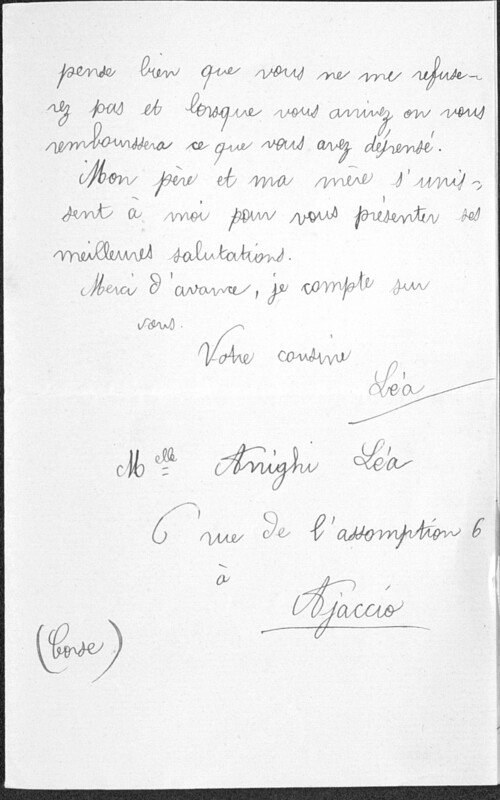 pense bien que vous ne me refuse-
rez pas et lorsque vous arrivez on vous
remboursera ce que vous avez dépensé.
Mon père et ma mère s'unis-
sent à moi pour vous présenter ses
meilleures salutations.
Merci d'avance, je compte sur
vous.
Votre cousine
Léa
Melle Arrighi Léa
6 rue de l'assomption 6
à
Ajaccio
(Corse)